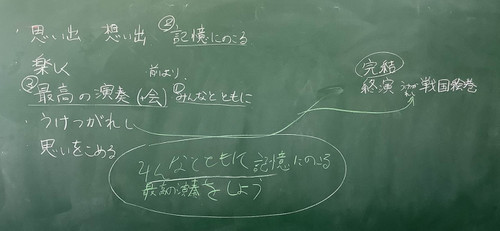 ・思い出　想い出　③記憶にのこる
楽しく　前より、
②最高の演奏(会)　①みんなとともに
・うけつがれし
思いをこめる
みんなとともに記憶にのこる
最高の演奏をしよう
完結
終演　戦国絵巻